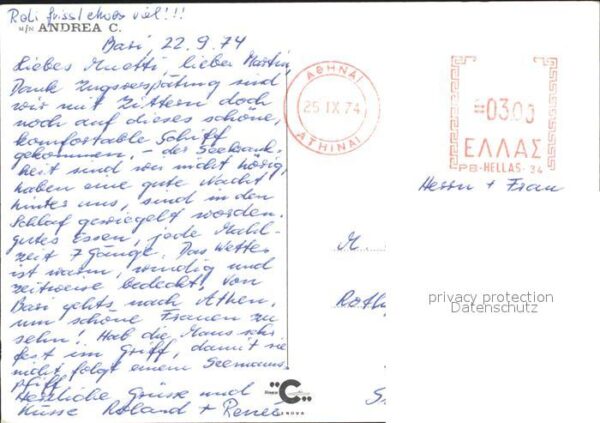 Roli frisst etwas viel!!!
M/N ANDREA C.
Bari, 22.9.74
Liebes Muetti, lieber Martin,
Dank Zugsverspätung sind
wir mit Zittern doch
noch auf dieses schöne,
komfortable Schiff
gekommen. – der Seekrank-
heit sind wir nicht hörig,
haben eine gute Nacht
hinter uns, sind in den
Schlaf gewiegelt worden.
Gutes Essen, jede Mahl-
zeit 7 Gänge. Das Wetter
ist warm, windig und
zeitweise bedeckt. Von
Bari gehts nach Athen,
um schöne Frauen zu
sehn! Hab die Maus sehr
fest im Griff, damit sie
nicht folgt einem Seemanns-
pfiff.
Herzliche Grüsse und
Küsse Roland + Renée
ΑΘΗΝΑΙ
25 IX 74
ATHINAI
=03.00
ΕΛΛΑΣ
PB-HELLAS-34
Herrn + Frau
M.
Roth
privacy protection
Datenschutz
S
"C"